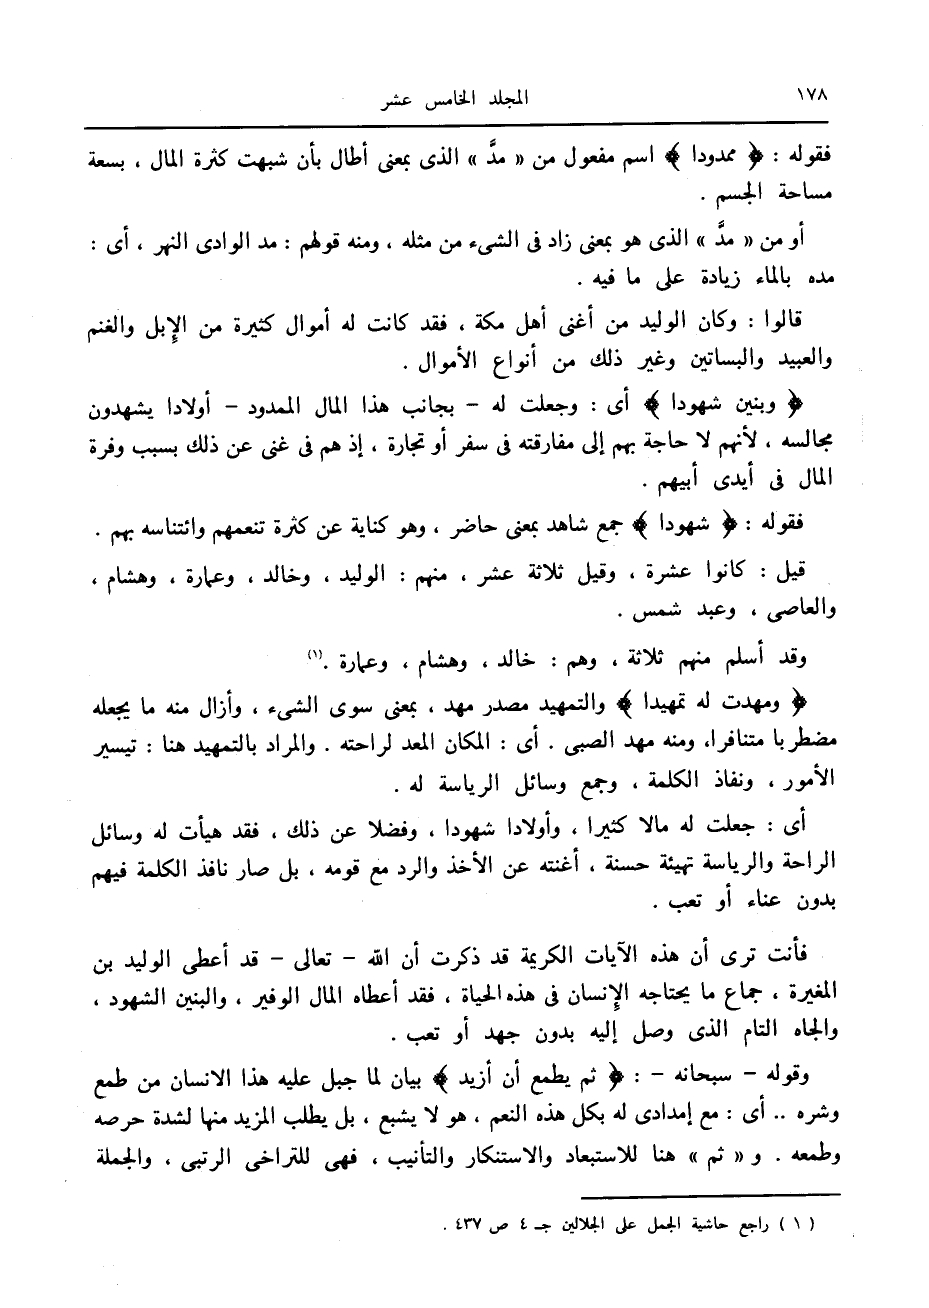 ١٧٨
المجلد الخامس عشر
فقوله : ﴿ ممدودا ﴾ اسم مفعول من « مدَّ » الذى بمعنى أطال بأن شبهت كثرة المال ، بسعة
مساحة الجسم .
أو من « مدَّ » الذى هو بمعنى زاد فى الشىء من مثله ، ومنه قولهم : مد الوادى النهر ، أى :
مده بالماء زيادة على ما فيه .
قالوا : وكان الوليد من أغنى أهل مكة ، فقد كانت له أموال كثيرة من الإبل والغنم
والعبيد والبساتين وغير ذلك من أنواع الأموال .
﴿ وبنين شهودا ﴾ أى : وجعلت له – بجانب هذا المال الممدود – أولادا يشهدون
مجالسه ، لأنهم لا حاجة بهم إلى مفارقته فى سفر أو تجارة ، إذ هم فى غنى عن ذلك بسبب وفرة
المال فى أيدى أبيهم .
فقوله : ﴿ شهودا ﴾ جمع شاهد بمعنى حاضر ، وهو كناية عن كثرة تنعمهم وائتناسه بهم .
قيل : كانوا عشرة ، وقيل ثلاثة عشر ، منهم : الوليد ، وخالد ، وعمارة ، وهشام ،
والعاصى ، وعبد شمس .
وقد أسلم منهم ثلاثة ، وهم : خالد ، وهشام ، وعمارة .(١)
﴿ ومهدت له تمهيدا ﴾ والتمهيد مصدر مهد ، بمعنى سوى الشىء ، وأزال منه ما يجعله
مضطربا متنافرا، ومنه مهد الصبى . أى : المكان المعد لراحته . والمراد بالتمهيد هنا : تيسير
الأمور ، ونفاذ الكلمة ، وجمع وسائل الرياسة له .
أى : جعلت له مالا كثيرا ، وأولادا شهودا ، وفضلا عن ذلك ، فقد هيأت له وسائل
الراحة والرياسة تهيئة حسنة ، أغنته عن الأخذ والرد مع قومه ، بل صار نافذ الكلمة فيهم
بدون عناء أو تعب .
فأنت ترى أن هذه الآيات الكريمة قد ذكرت أن الله – تعالى – قد أعطى الوليد بن
المغيرة ، جماع ما يحتاجه الإنسان فى هذه الحياة ، فقد أعطاه المال الوفير ، والبنين الشهود ،
والجاه التام الذى وصل إليه بدون جهد أو تعب .
وقوله – سبحانه – : ﴿ ثم يطمع أن أزيد ﴾ بيان لما جبل عليه هذا الانسان من طمع
وشره .. أى : مع إمدادى له بكل هذه النعم ، هو لا يشبع ، بل يطلب المزيد منها لشدة حرصه
وطمعه . و « ثم » هنا للاستبعاد والاستنكار والتأنيب ، فهى للتراخى الرتبى ، والجملة
( ١ ) راجع حاشية الجمل على الجلالين جـ ٤ ص ٤٣٧ .